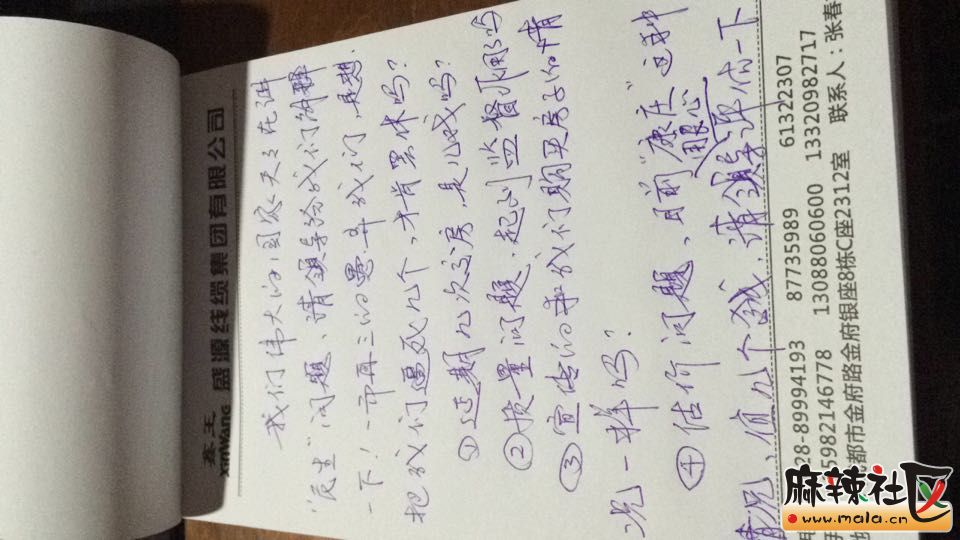 鑫王 XinWang 盛源线缆集团有限公司
我们伟大的国家天天在讲
"民生"问题、请领导给我们解释
一下!一而再三的愚弄我们,是想
把我们逼死几个,才肯罢休吗?
①延期几次交房,是儿戏吗?
②质量问题、起到监督作用了吗
③宣传的和我们购买房子的情
况一样吗?
④估价问题、目前"康庄"这种
情况、值几个钱、请领导评估一下
用心
28-89994193 87735989 61322307
15982146778 13088060600 13320982717
都市金府路金府银座8栋C座2312室 联系人:张春
麻辣社区
www.mala.cn